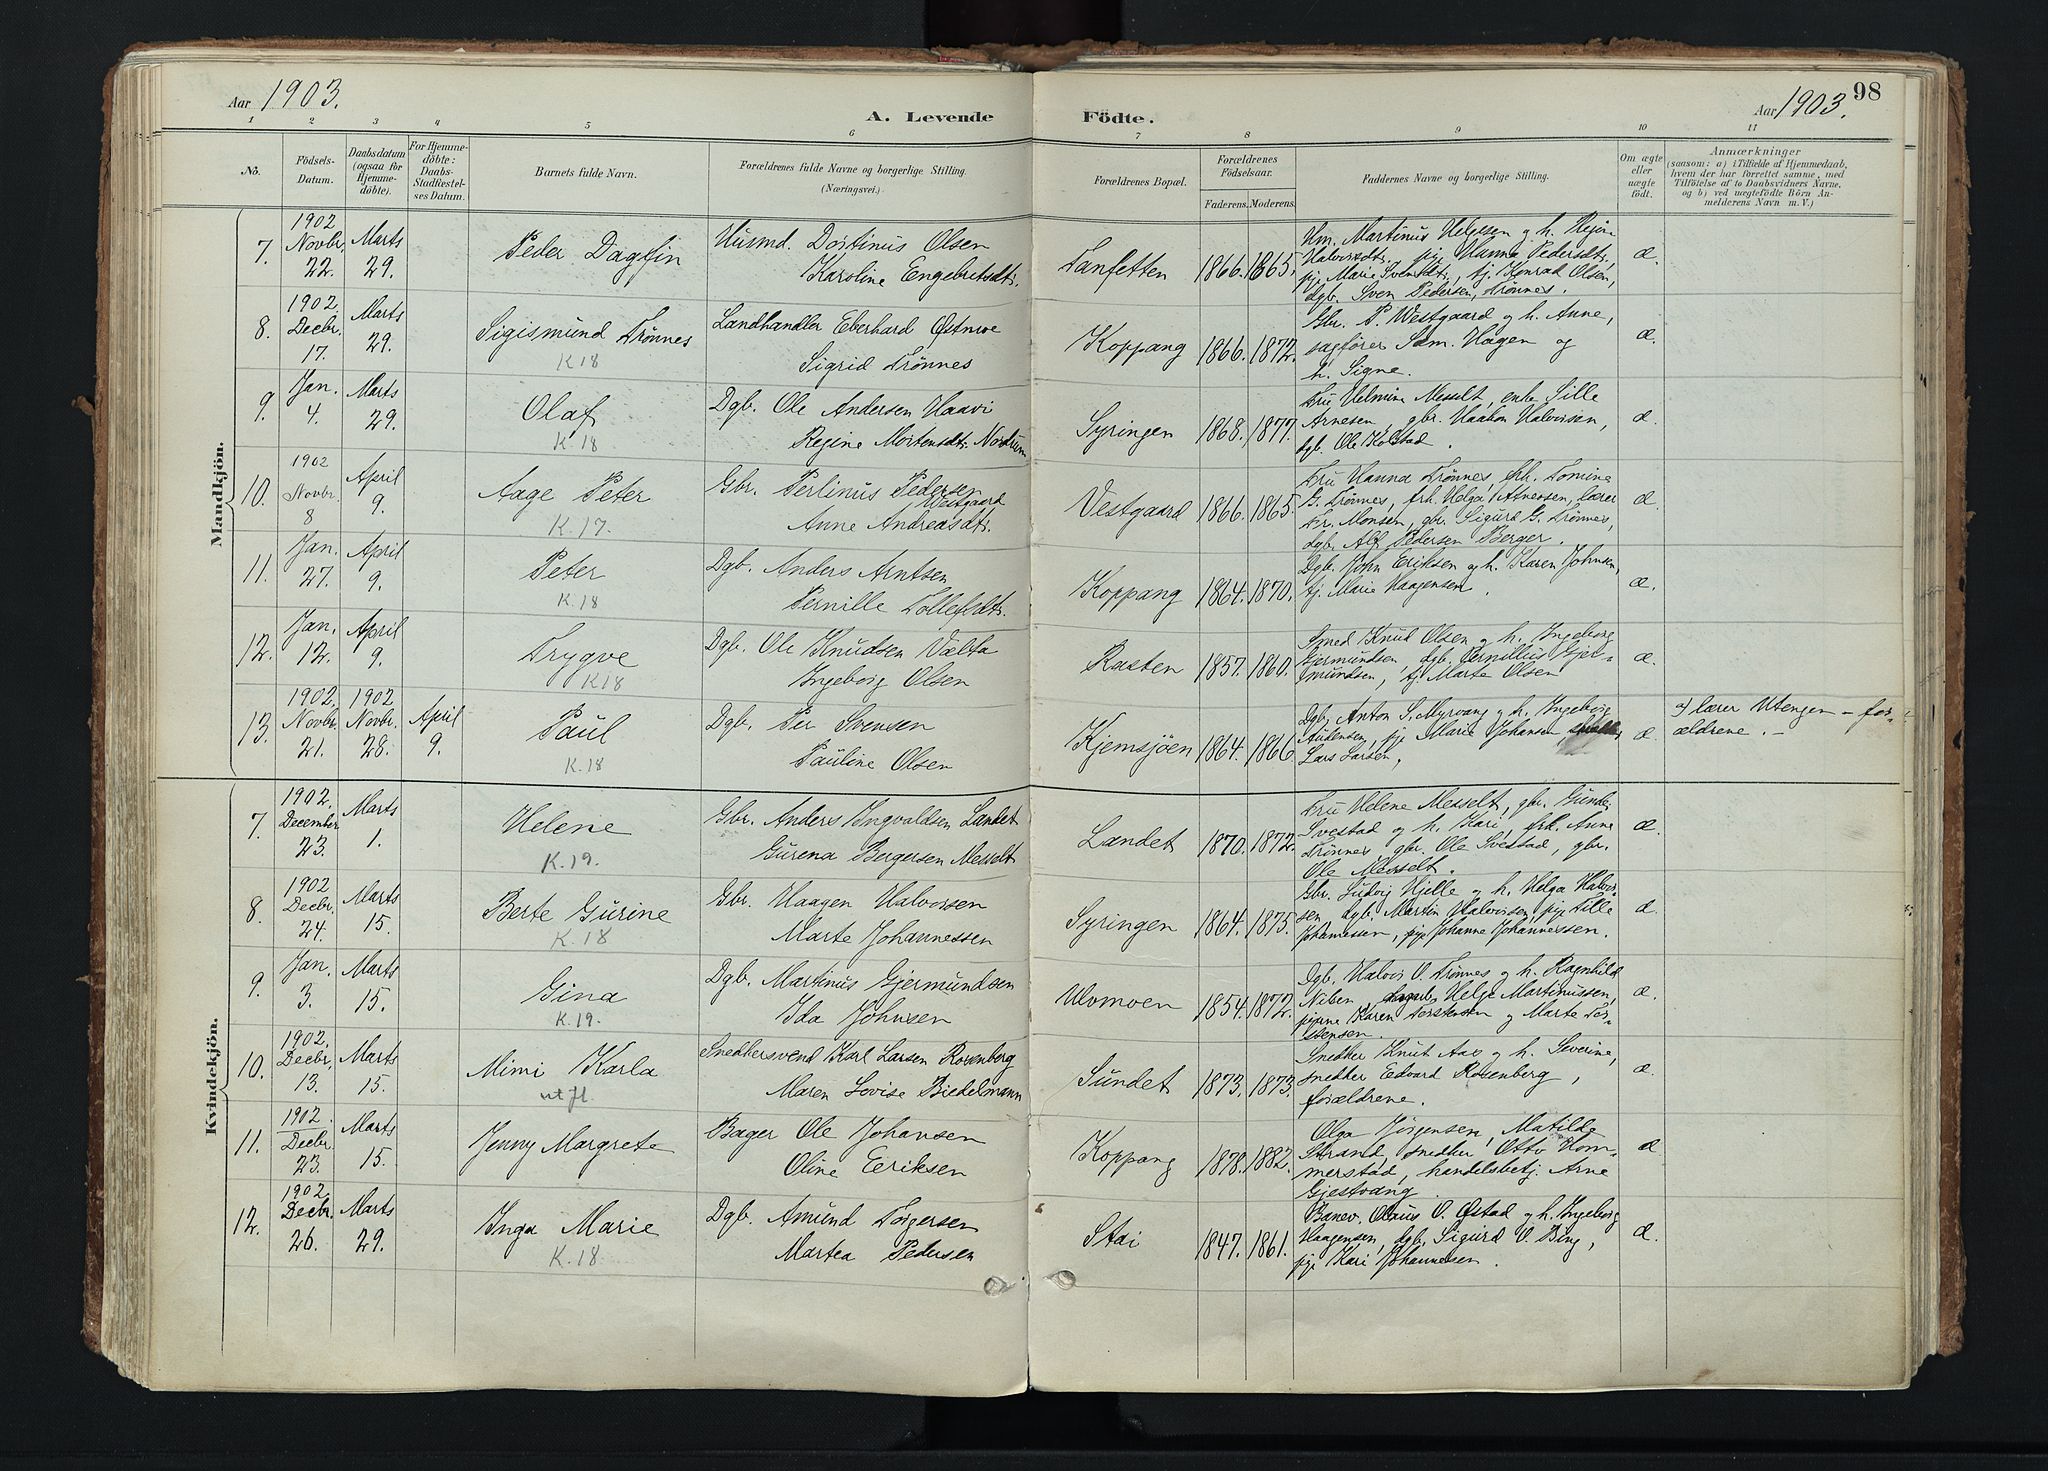 Aar 1903.
A. Levende Födte.
Aar 1903.
98
1 2 3 4 5 6 7 8 9 10 11
No.
Födsels-
Datum.
Daabsdatum
(ogsaa for
Hjemme-
döbte).
For Hjemme-
döbte:
Daabs-
Stadfæstel-
ses Datum.
Barnets fulde Navn.
Forældrenes fulde Navne og borgerlige Stilling.
(Næringsvei.)
Forældrenes Bopæl.
Forældrenes
Födselsaar.
Faderens. Moderens.
Faddernes Navne og borgerlige Stilling.
Om ægte
eller
uægte
födt.
Anmærkninger
(saasom: a) i Tilfælde af Hjemmedaab,
hvem der har forrettet samme, med
Tilföielse af to Daabsvidners Navne,
og b) ved uægtefödte Börn An-
melderens Navn m. V.)
Mandkjön.
7.
1902
Novbr.
22.
Marts
29.
Peder Dagfin
Husmd. Dortinus Olsen
Karoline Engebretsdtr.
Tanfetten
1866. 1865.
Um. Martinus Helgesen og h. Regine
Halvorsdtr., pige Hanna Pedersdtr.,
pj. Marie Svendsdtr., tj. Konrad Olsen,
dgb. Sven Pedersen, Trønnes.
æ.
8.
1902
Decbr.
17.
Marts
29.
Sigismund Trønnes
K 18
Landhandler Eberhard Østnæs
Sigrid Trønnes
Koppang
1866. 1872.
Gbr. P. Westgaard og h. Anne,
sagfører Sam. Hagen og
h. Signe.
æ.
9.
Jan.
4.
Marts
29.
Olaf
K 18
Dgb. Ole Andersen Haavi
Regine Mortensdtr. Nordrum
Syringen
1868. 1877.
Fru Helmine Messelt, enke Sille
Arnesen, gbr. Haakon Halvorsen,
dgb. Ole Kolstad.
æ.
10.
1902
Novbr.
8
April
9.
Aage Peter
K. 17.
Gbr. Perlinus Pedersen
Westgaard
Anne Andreasdtr.
Vestgaard
1866. 1865.
Fru Hanna Trønnes, frk. Tomine
G. Trønnes, frk. Helga Atnessen, lærer
Fr. Monsen, gbr. Sigurd G. Trønnes,
dgb. Alf Pedersen Berger.
æ.
11.
Jan.
27.
April
9.
Peter
K. 18
Dgb. Anders Arntsen
Pernille Tollefsdtr.
Koppang
1864. 1870.
Dgb. John Eriksen og h. Karen Johnsen,
tj. Marie Haagensen.
æ.
12.
Jan.
12.
April
9.
Trygve
K 18
Dgb. Ole Knudsen Vælta
Ingeborg Olsen
Rasten
1857. 1860.
Smed Knud Olsen og h. Ingeborg
Gjermundsen, dgb. Pernillus Gjer-
mundsen, tj. Marte Olsen
æ.
13.
1902.
Novbr.
21.
1902
Novbr.
28.
April
9.
Paul
K. 18
Dgb. Per Svensen
Pauline Olsen
Kjemsjøen
1864. 1866
Dgb. Anton S. Myrvang og h. Ingeborg
Audensen, pige Marie Johansen
Lars Larsen,
æ.
a) lærer Utengen - for-
ældrene. -
Kvindekjön.
7.
1902.
December
23.
Marts
1.
Helene
K. 19.
Gbr. Anders Ingvaldsen Landet
Gurena Bergersen Messelt
Landet
1870. 1872.
Fru Helene Messelt, gbr. Gunder
Svestad og h. Kari, frk. Anne
Trønnes, gbr. Ole Svestad, gbr.
Ole Messelt.
æ.
8.
1902
Decbr.
24.
Marts
15.
Berte Gurine
K. 18
Gbr. Haagen Halvorsen
Marte Johannessen
Syringen
1864. 1875.
Gbr. Ludvig Hjelle og h. Helga Halvor-
sen, dgb. Martin Halvorsen, pige Tille
Johannessen, pige Johanne Johannessen.
æ.
9.
Jan.
3.
Marts
15.
Gina
K. 19.
Dgb. Martinus Gjermundsen
Ida Johnsen
Ulvmoen
1854. 1872.
Dgb. Halvor O. Trønnes og h. Ragnhild
Niben, Helge Martinussen,
pigerne Karen Torstensen og Marte Tor-
stensen.
æ.
10.
1902.
Decbr.
13.
Marts
15.
Mimi Karla
utfl.
Snedkersvend Karl Larsen Rosenberg
Maren Lovise Biedelmann
Sundet
1873. 1873.
Snedker Knut Aas og h. Severine,
snedker Edvard Rosenberg,
forældrene.
æ.
11.
1902
Decbr.
23.
Marts
15.
Jenny Margrete
Bager Ole Johansen
Oline Eeriksen
Koppang
1878. 1882.
Olga Jørgensen, Matilde
Strand, snedker Otto Hom-
merstad, handelsbetj. Arne
Gjestvang.
æ
12.
1902
Decbr.
26.
Marts
29.
Inga Marie
K. 18
Dgb. Amund Torgersen
Martea Pedersen
Stai
1847. 1861.
Banev. Olaus O. Østad og h. Ingeborg
Haagensen, dgb. Sigurd O. Bing,
pige Kari Johannessen.
æ.